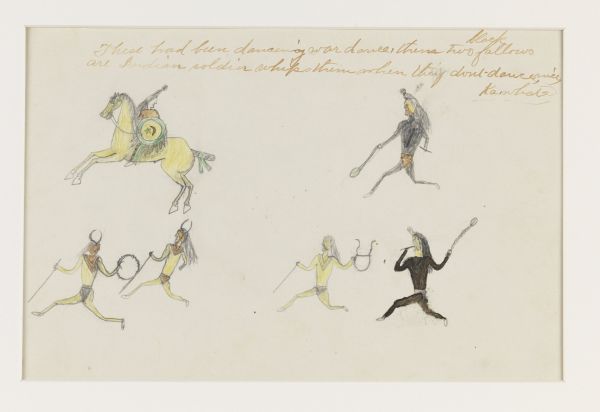 black
These had been dancing war dance, these two fellows
are Indian soldier whips them when they dont dance nice